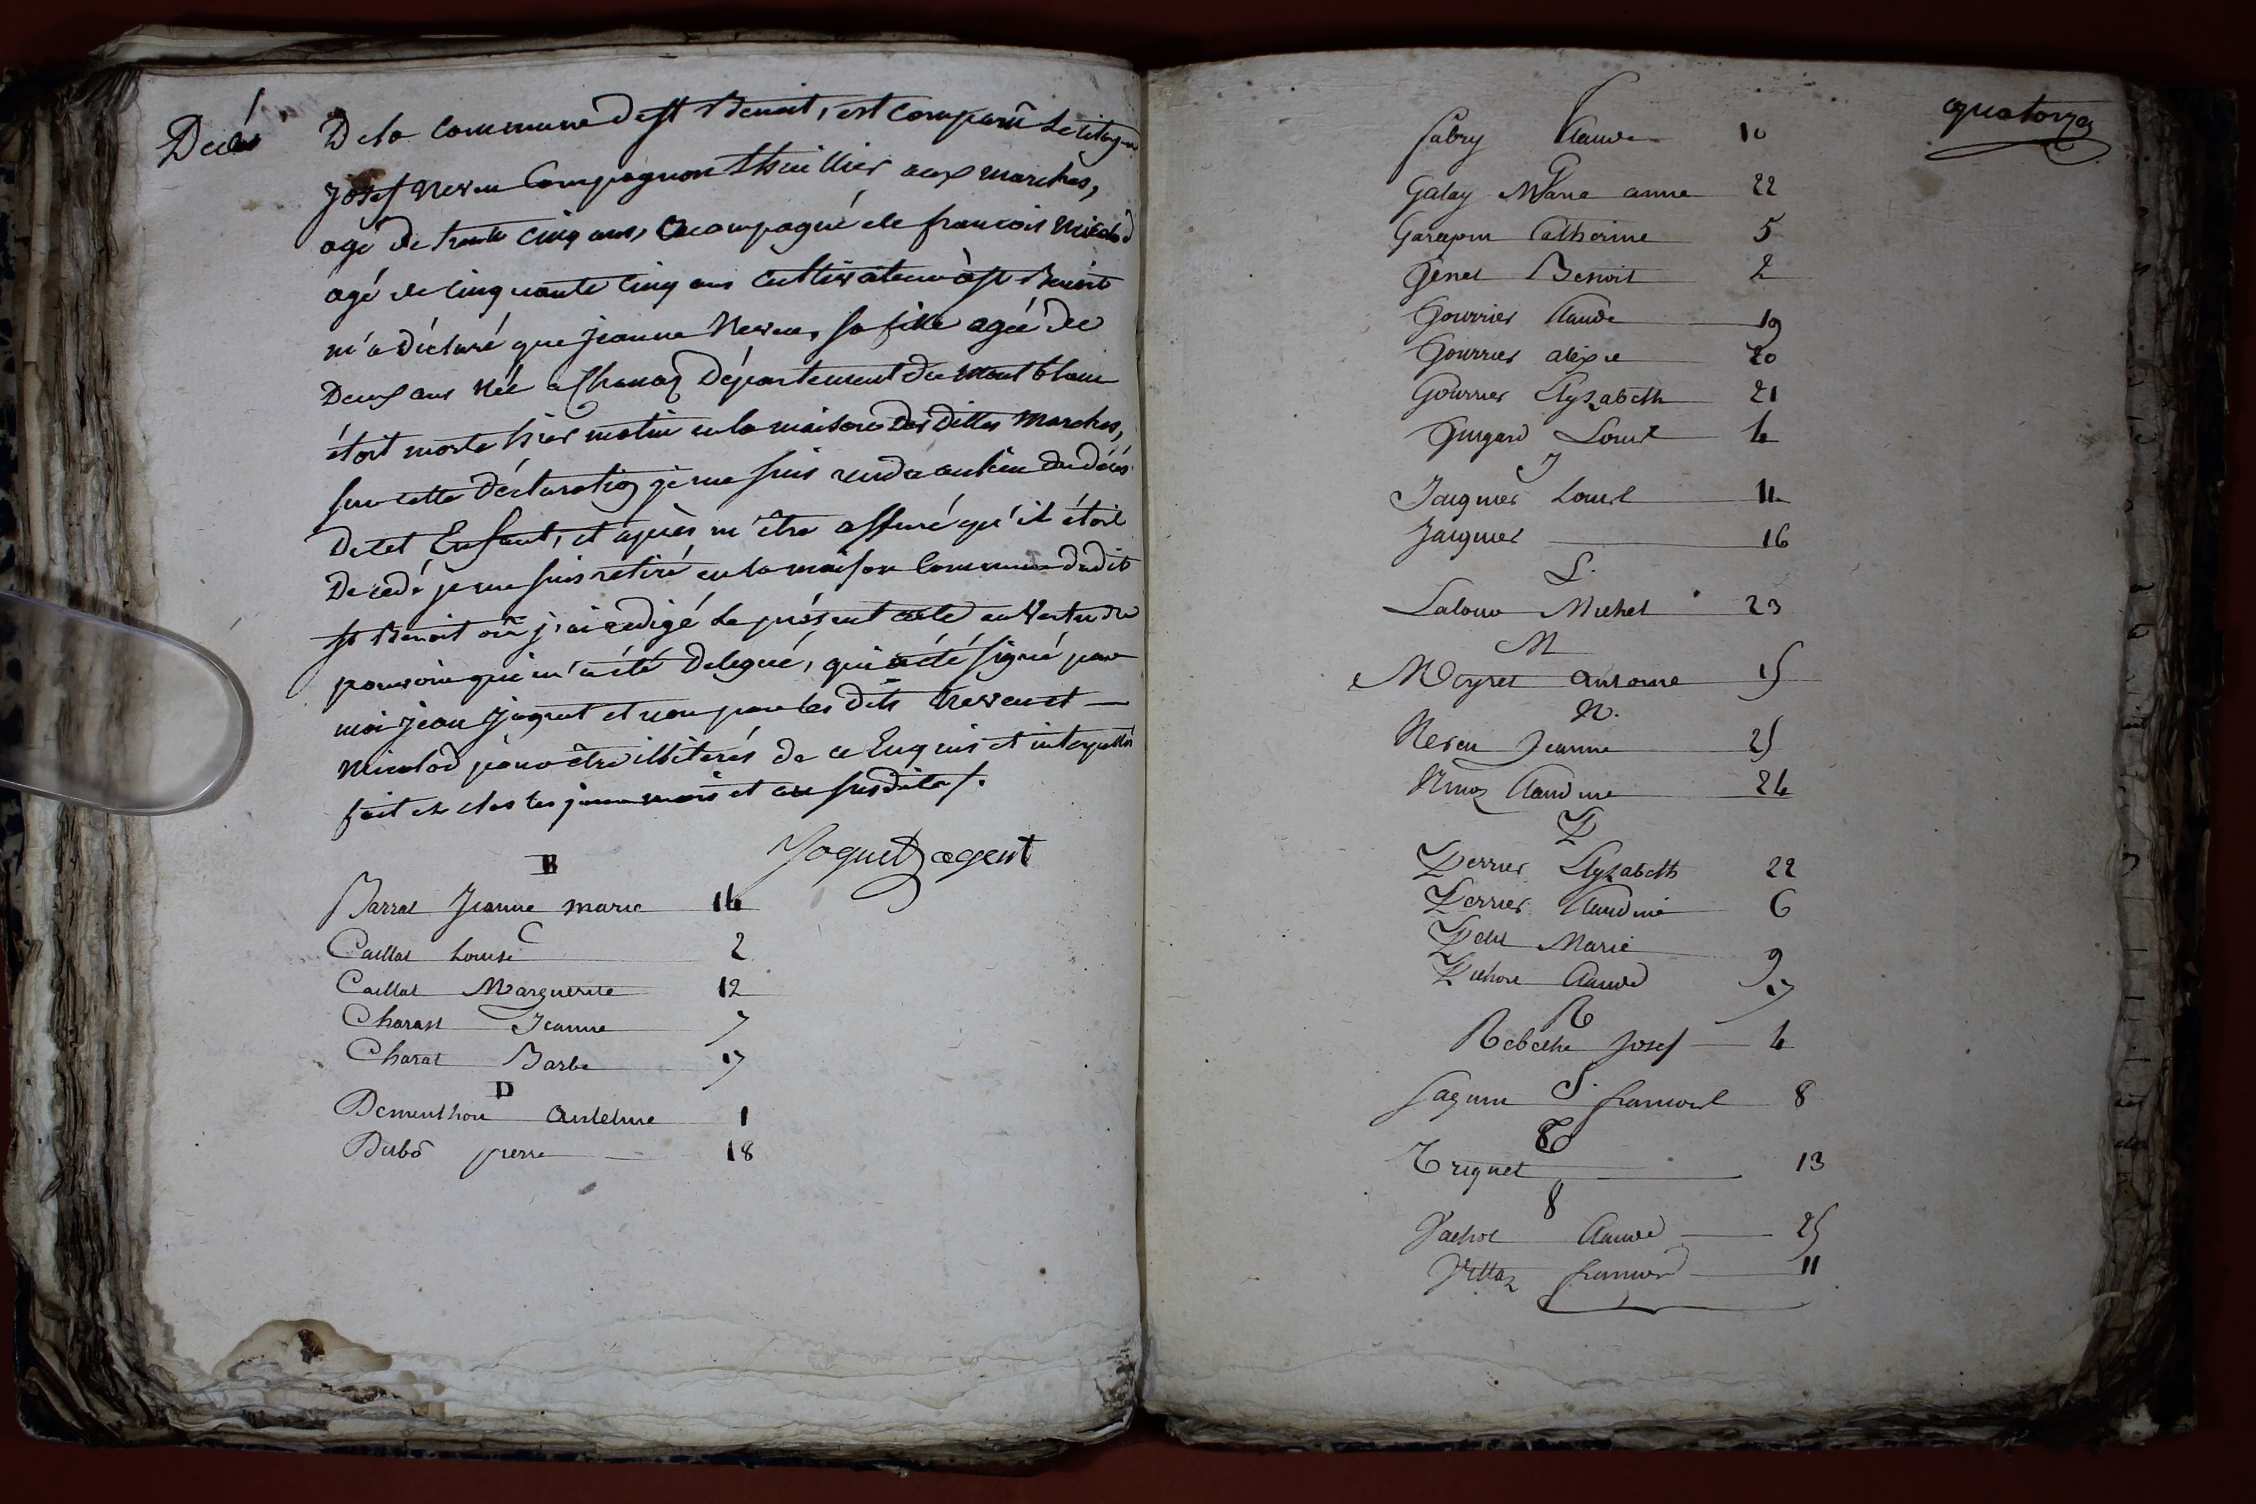 Decés
De la commune de st Benoit, est comparû le citoyen
josef Neveu Compagnon thuillier aux marches,
agé de trente cinq ans, accompagné de francois micolod
agé de cinquante cinq ans cultivateur à st Benoit
m'a déclaré que jeanne Neveu, sa fille agée de
Deux ans née a Chanaz Département du mont blanc
étoit morte hier matin en la maison des dittes marches,
sur cette déclaration je me suis rendu au lieu du décés
de cet Enfant, et après m'être assuré qu'il étoit
décedé je me suis retiré en la maison Commune dudit
st Benoit où j'ai redigé le présent acte en vertu du
pouvoir qui m'a été delegué, qui a été signé par
moi jean joguet et non par les dits Neveu et
micolod pour être illiterés de ce Enquis et interpellés
fait et clos les jour mois et an susdites.
Joguet agent
B
Barrat Jeanne marie 14
C
Caillat Louise 2
Caillat Marguerite 12
Charast Jeanne 7
Charat Barbe 17
D
Dementhon Antelme 1
Dubô pierre 18
quatorze
F
fabry Claude 10
G
Galay Marie anne 22
Garapon Catherine 5
Genet Benoit 2
Gourrier Claude 19
Gourrier alexie 20
Gourrier Elyzabeth 21
Guigard Louis 4
J
Jacquier Louis 11
Jacquier 16
L.
Laloue Michel 23
M
Meyret Antoine 15
N.
Neveu Jeanne 25
Ninoz Claudine 24
P
Perrier Elyzabeth 22
Perrier Claudine 6
Petit Marie 9
Pichon Claude 17
R
Rebethe Josef 4
S.
Saguin francois 8
T
Triquet 13
V
Vachot Claude 25
Vettaz francois 11